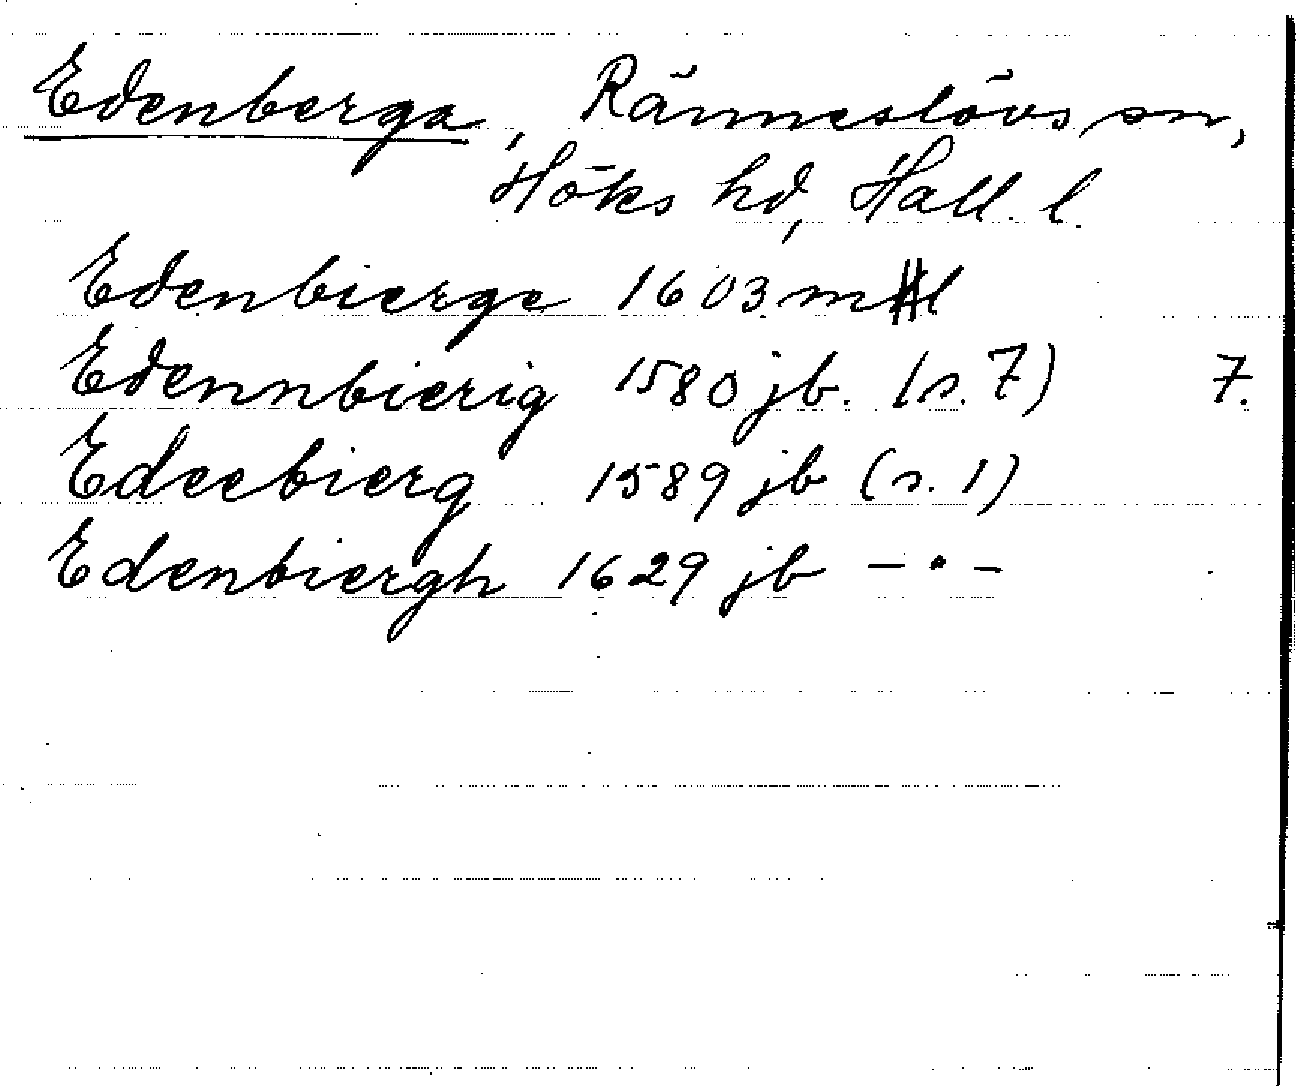 Edenberga, Ränneslövs sn,
Höks hd, Hall. l.
Edenbierge 1603 ml
Edennbierig 1580 jb. (s. 7) 7.
Edeebierg 1589 jb (s. 1)
Edenbiergh 1629 jb –•–